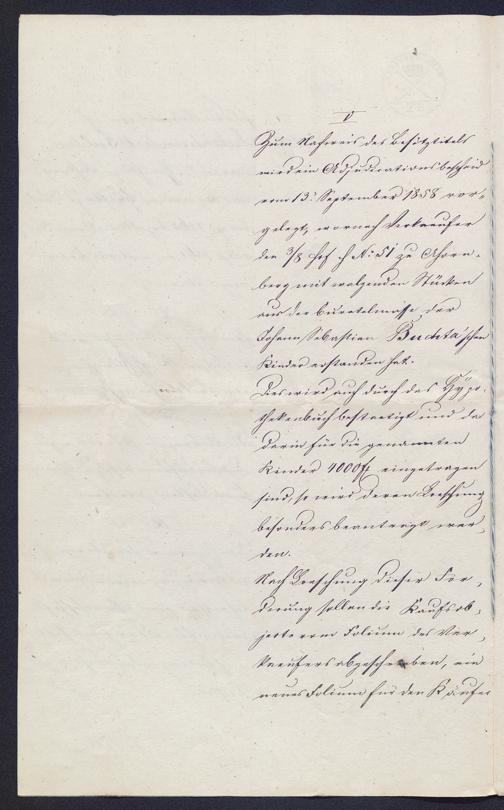 V
Zum Nachweis des Besitztitels
wird ein Adjudicationsbescheid
vom 13. September 1858 vor-
gelegt, wornach Verkaeufer
den 3/8 Hof H N: 51 zu Ahorn-
berg mit walzenden Stücken
aus der Curatelmasse der
Johann Sebastian Buchta'schen
Kinder erstanden hat.
Dies wird auch durch das Hypo-
thekenbuch bestaetigt und da
darin für die genannten
Kinder 4000 fl eingetragen
sind, so wird deren Loeschung
besonders beantragt wer-
den.
Nach Loeschung dieser For-
derung sollen die Kaufsob-
jecte vom Folium des Ver-
kaeufers abgeschrieben, ein
neues Folium für den Käufer